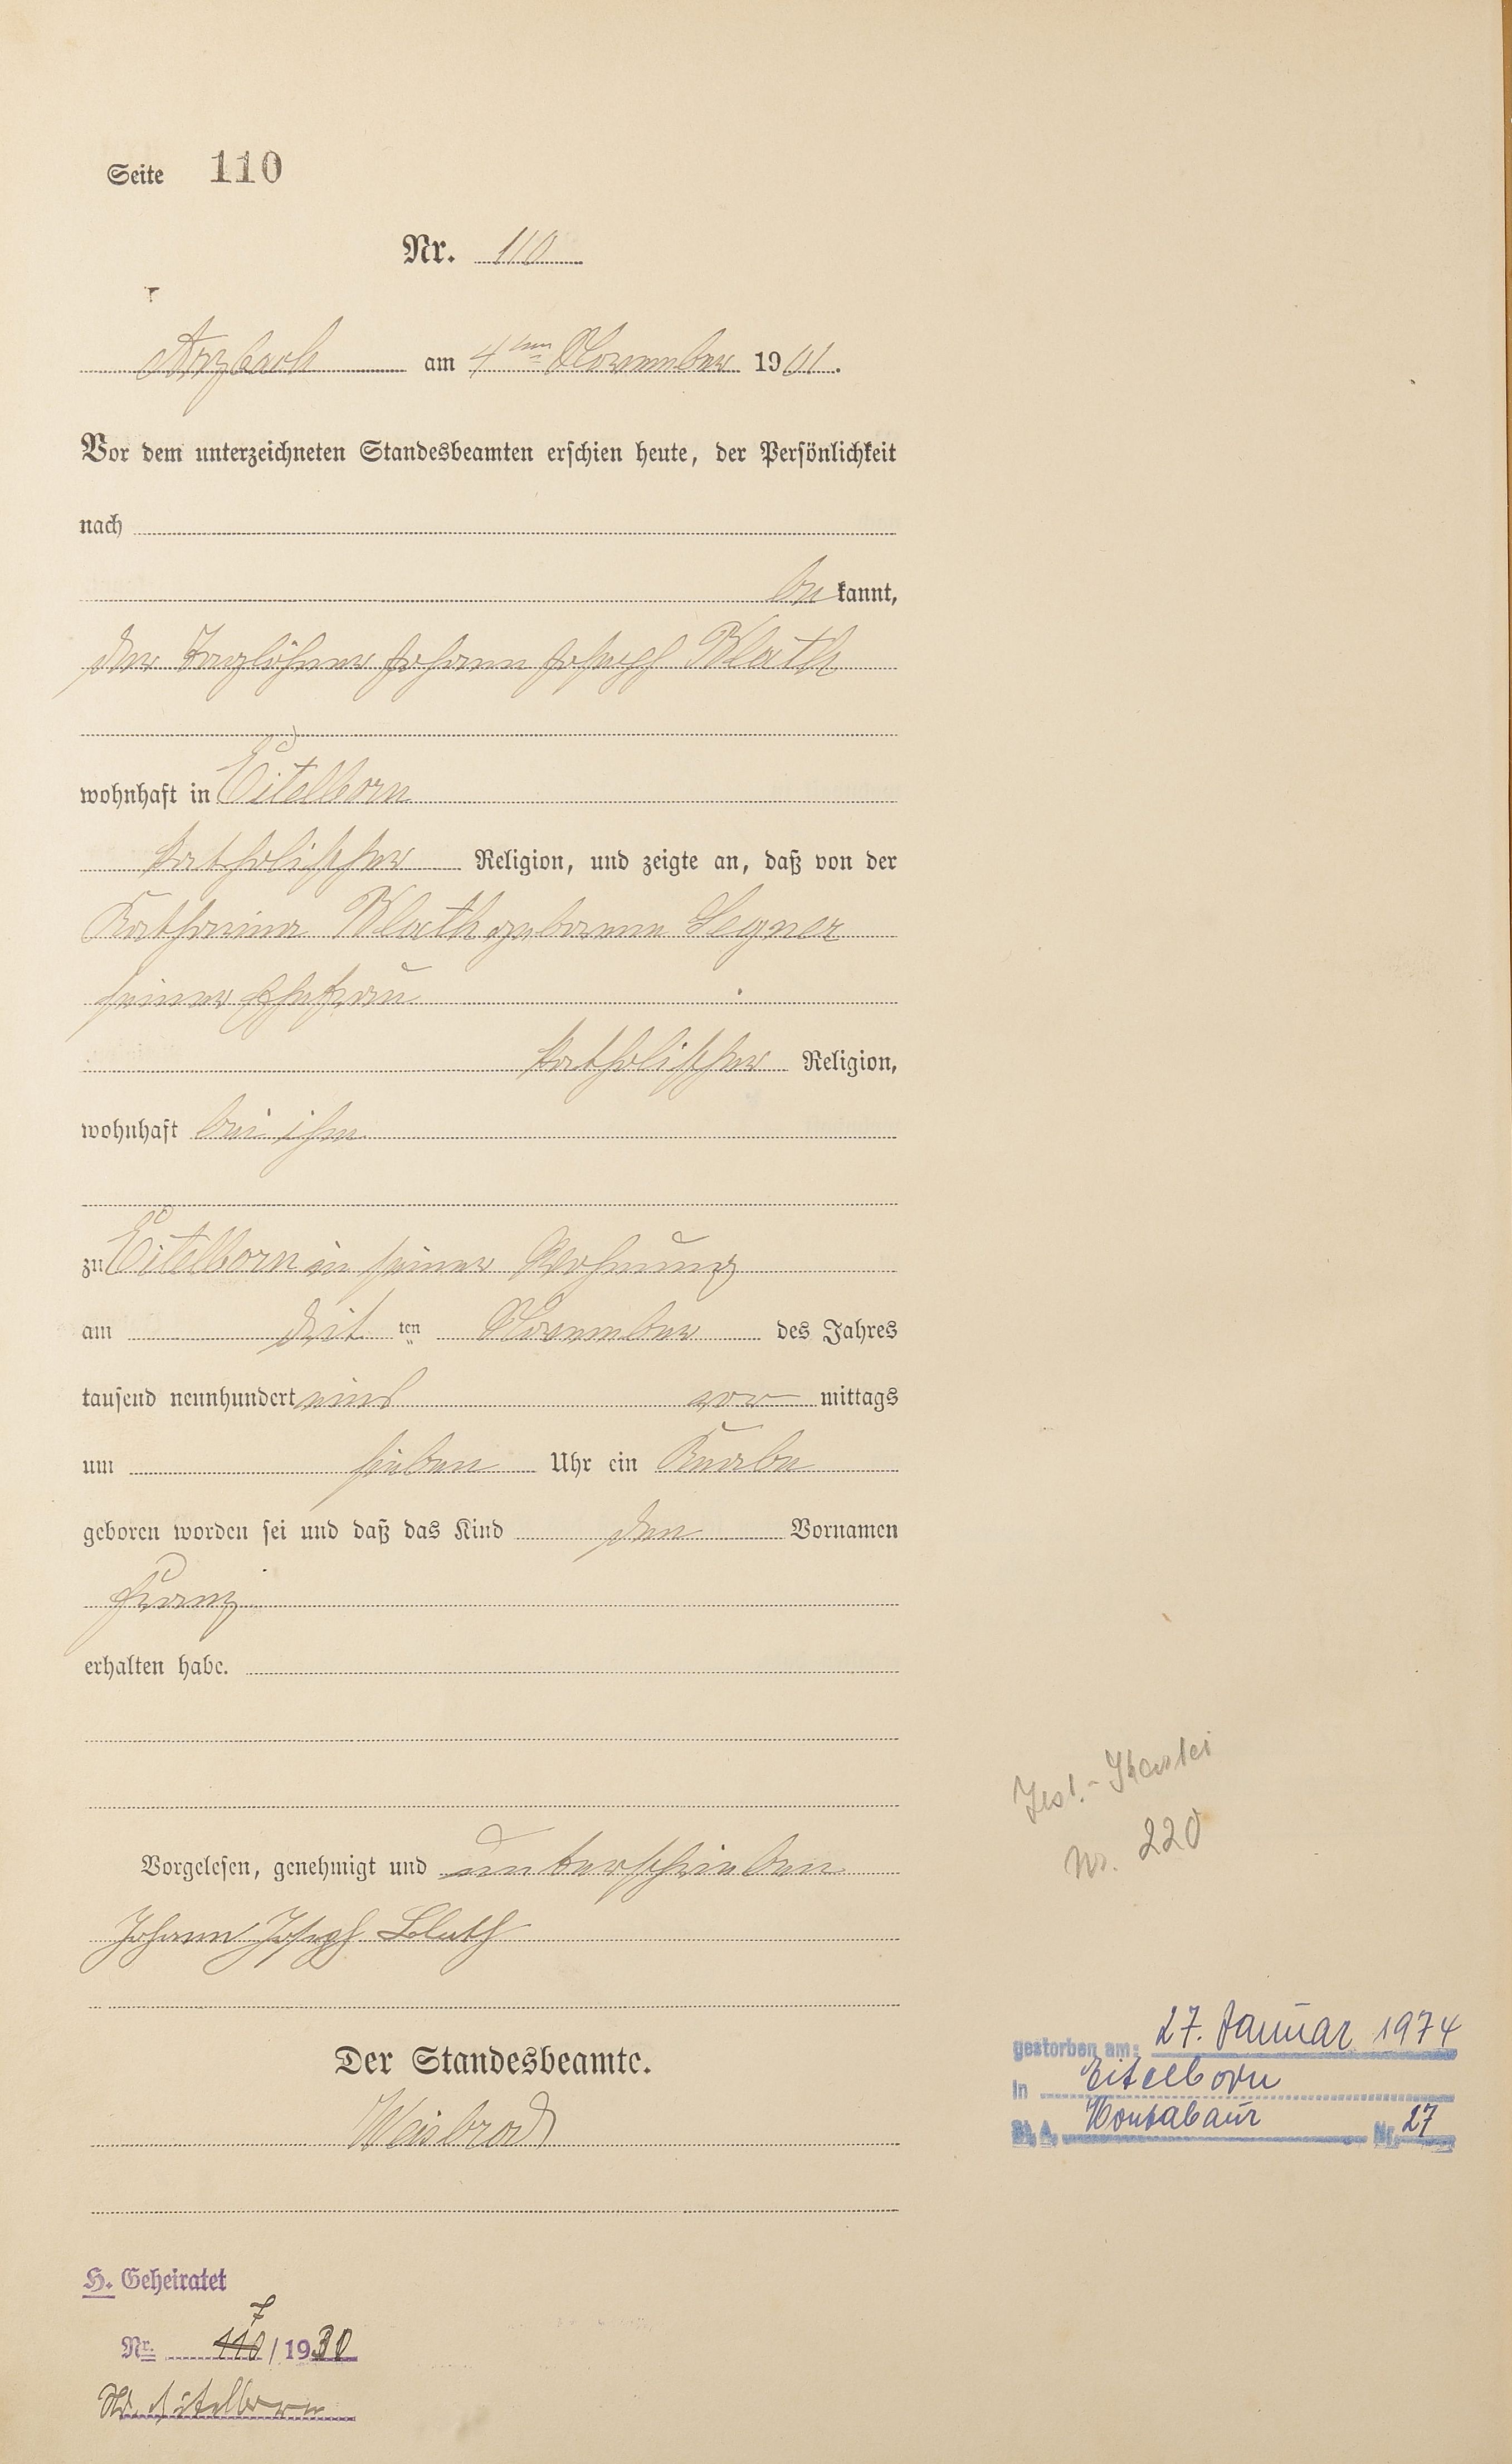 Seite 110
Nr. 110
Arzbach am 4ten November 1901.
Vor dem unterzeichneten Standesbeamten erschien heute, der Persönlichkeit
nach
be kannt,
der Taglöhner Johann Joseph Blath
wohnhaft in Eitelborn
katholischer Religion, und zeigte an, daß von der
Katharina Blath geborene Segner
seiner Ehefrau
katholischer Religion,
wohnhaft bei ihm
zu Eitelborn in seiner Wohnung
am drit ten November des Jahres
tausend neunhundert eins vor mittags
um sieben Uhr ein Knabe
geboren worden sei und daß das Kind den Vornamen
Franz
erhalten habe.
Vorgelesen, genehmigt und unterschrieben
Johann Joseph Blath
Der Standesbeamte.
Weisbrod
H. Geheiratet
7
Nr. 110/1930
Eitelborn
Nr. 220
gestorben am: 27. Januar 1974
in Eitelborn
St. A. Montabaur Nr. 27